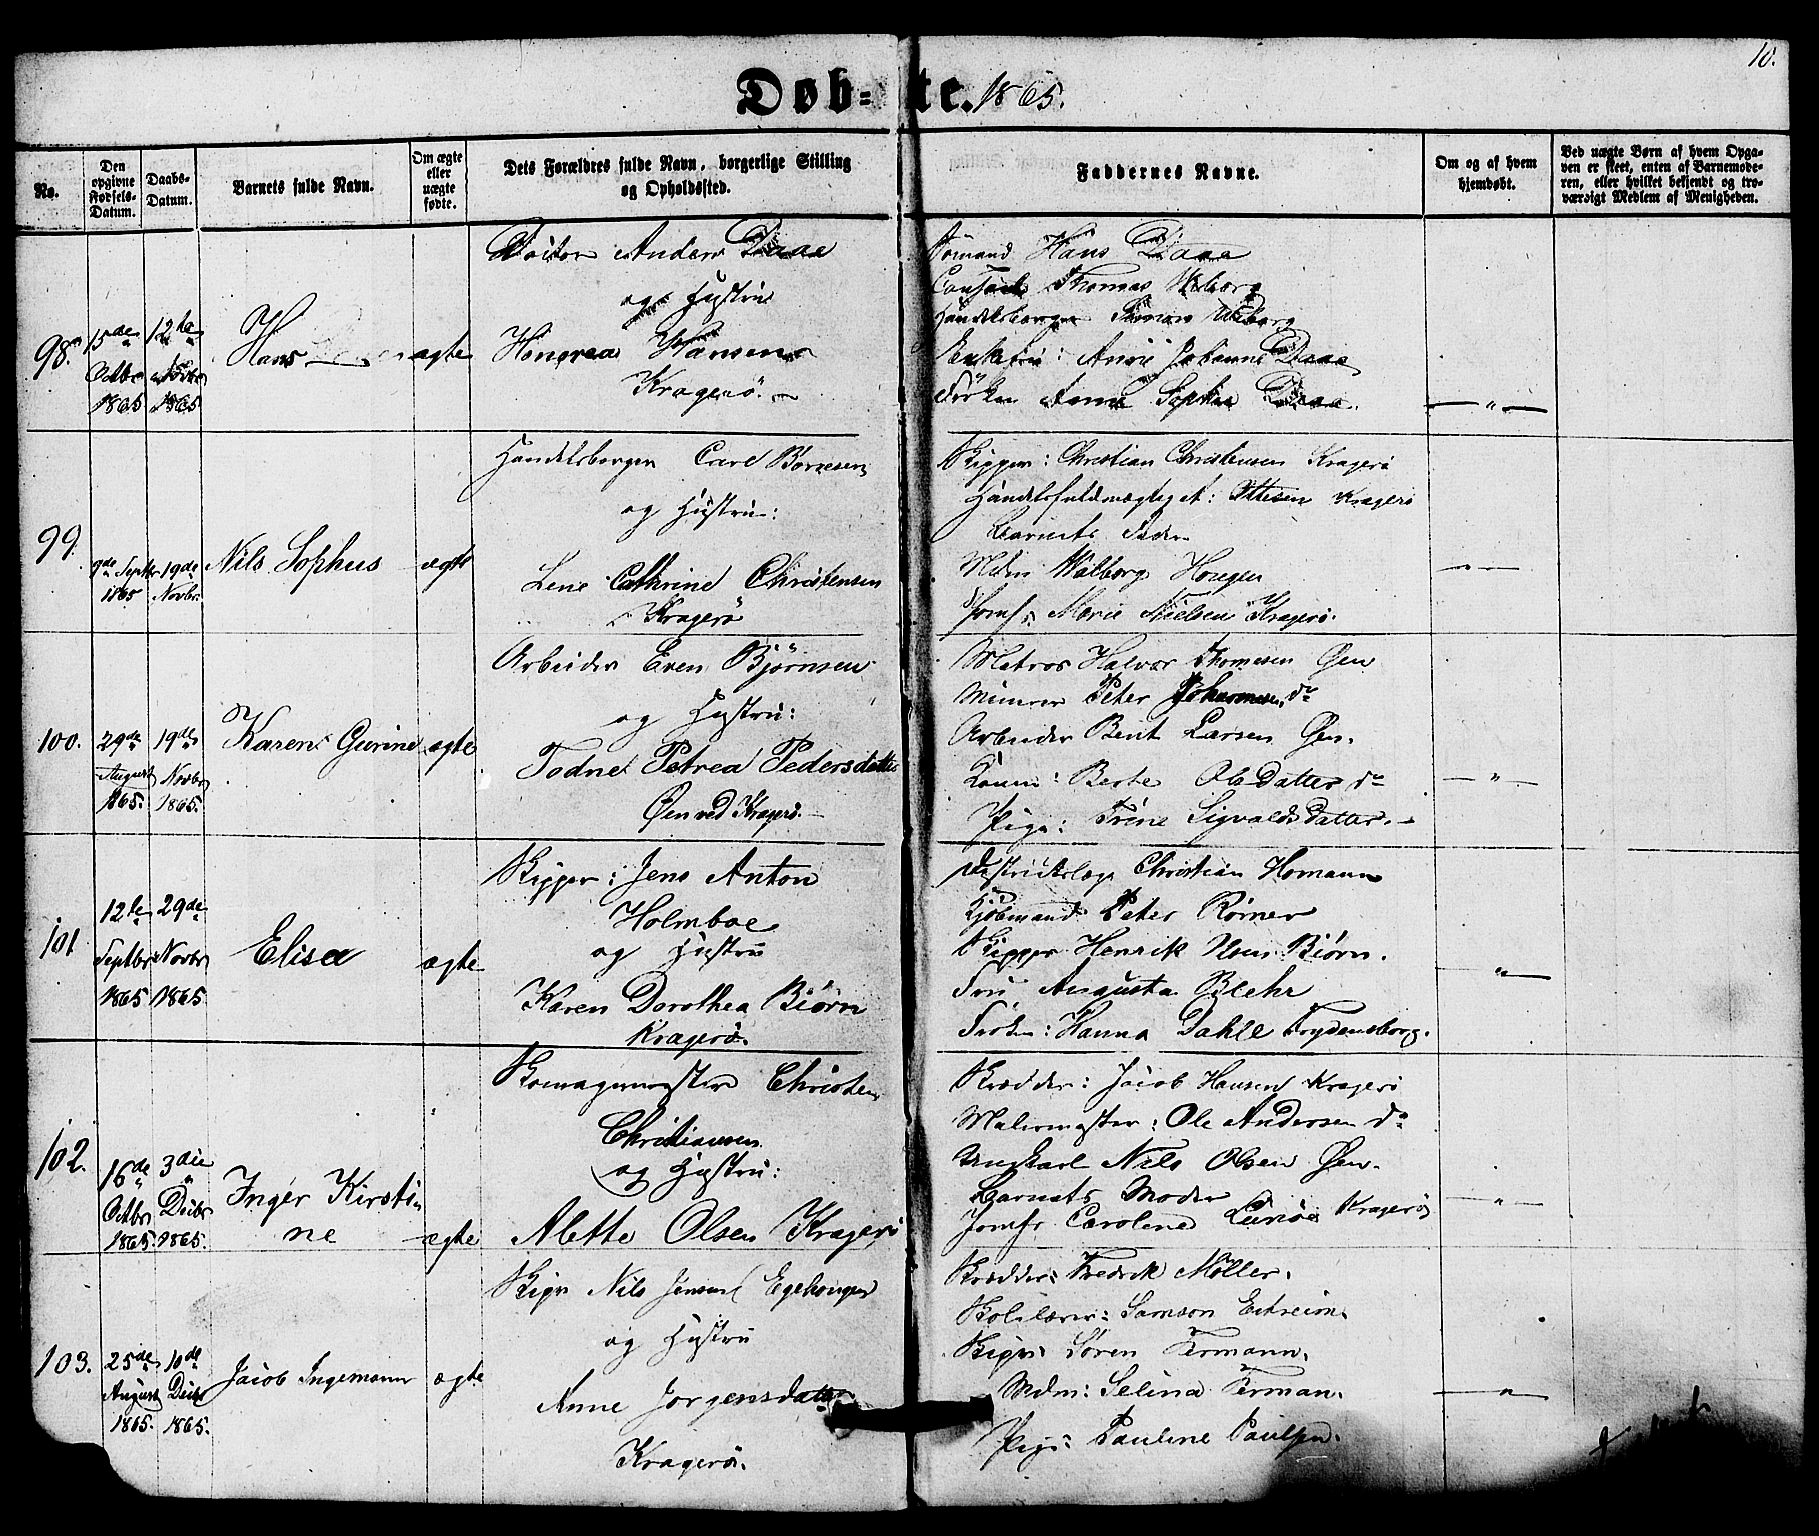 10.
Døb-te. 1865.
No.
Den opgivne Fødsels-Datum.
Daabs-Datum.
Barnets fulde Navn.
Om ægte eller uægte fødte.
Dets Forældres fulde Navn, borgerlige Stilling
og Opholdssted.
Faddernes Navne.
Om og af hvem
hjemdøbt.
Ved uægte Børn af hvem Opga-
ven er skeet, enten af Barnemode-
ren, eller hvilket bekjendt og tro-
værdigt Medlem af Menigheden.
98.
15de Octbr 1865
12te Novbr 1865
Hans
ægte
Doctor Anders Daae
og Hustru
Hansen
Kragerø.
Hans Daae
Thomas Wiborg
Handelsborger Simon Wiborg
Johanne Daae
Frøken Anna Sophie Daae.
— " —
99.
9de Septbr 1865
19de Novbr.
Nils Sophus
ægte
Handelsborger Carl Børresen
og Hustru:
Lene Cathrine Christensen
Kragerø
Skipper: Christian Christensen Kragerø
Handelsfuldmægtig Ottesen Kragerø
Barnets Fader
Mdm Walborg Hougen
Jomf: Marie Nielsen Kragerø.
— " —
100.
29de August 1865.
19de Novbr 1865.
Karen Gurine
ægte
Arbeider Even Bjørnsen
og Hustru:
Todne Petrea Pedersdatter
Øen ved Kragerø.
Matros Halvor Thomesen Øen
Murer Peter Johannesen do
Arbeider Bent Larsen Øen.
Kone: Berte Ols Datter do
Pige: Trine Sigvalds Datter.
— " —
101
12te Septbr 1865
29de Novbr 1865
Elisa
ægte
Skipper: Jens Anton
Holmboe
og Hustru
Karen Dorothea Biørn
Kragerø.
Districtslæge Christian Homann
Kjøbmand Peter Rømer
Skipper Henrik Biørn.
Fru Augusta Blehr
Frøken: Hanna Dahle Frydensborg.
— " —
102.
16de Octbr 1865.
3die Decbr 1865.
Inger Kirsti
ne
ægte
Skomagermester Christen
Christiansen
og Hustru:
Alette Olsen Kragerø
Skrædder: Jacob Hansen Kragerø
Malermester: Ole Andersen do
Ungkarl Nils Olsen Øen.
Barnets Moder
Jomfr Caroline Kragerø
— " —
103.
25de August 1865.
10de Decbr 1865.
Jacob Ingemann
ægte
Skipr Nils Jensen Egehougen
og Hustru
Anne Jørgensdatter
Kragerø.
Skrædder: Fredrik Møller.
Skolelærer: Samson Eitreim.
Skipr: Søren Fermann.
Mdm: Selina Ferman.
Pige: Pauline Paulsen.
— " —